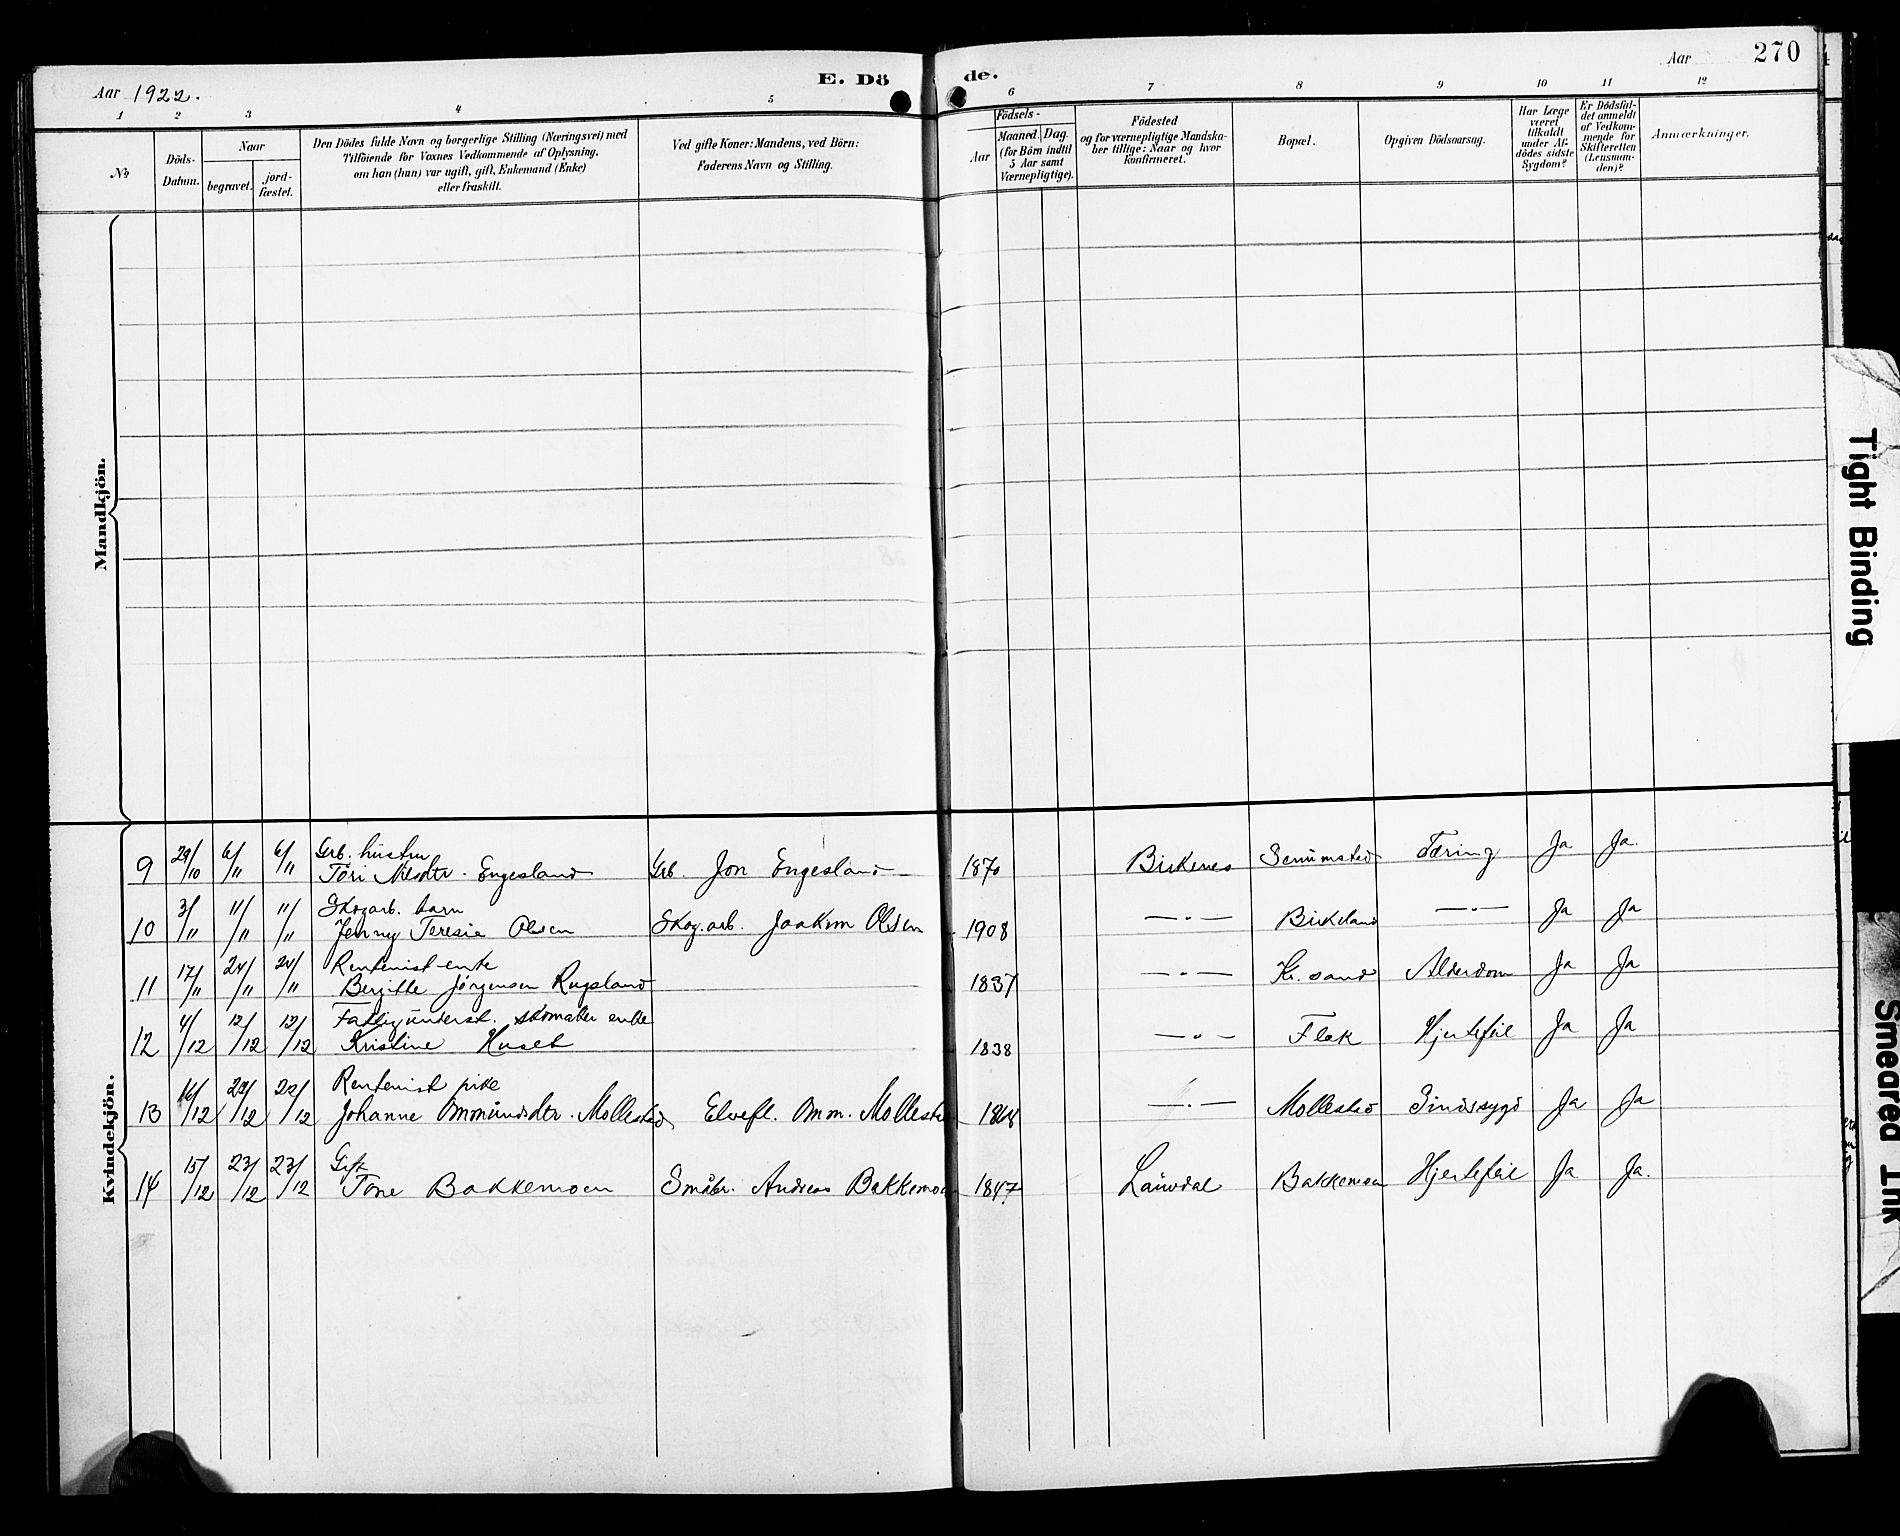 Aar 1922.
E. Dö
de.
Aar
270
1 2 3 4 5 6 7 8 9 10 11 12
No
Döds-
Datum.
Naar
begravet.
jord-
fæstet.
Den Dödes fulde Navn og borgerlige Stilling (Næringsvei) med
Tilföiende for Voxnes Vedkommende af Oplysning,
om han (hun) var ugift, gift, Enkemand (Enke)
eller fraskilt.
Ved gifte Koner: Mandens, ved Börn:
Faderens Navn og Stilling.
Födsels-
Aar
Maaned. Dag.
(for Börn indtil
5 Aar samt
Værnepligtige).
Födested
og for værnepligtige Mandska-
ber tillige: Naar og hvor
konfirmeret.
Bopæl.
Opgiven Dödsaarsag.
Har Læge
været
tilkaldt
under Af-
dödes sidste
Sygdom?
Er Dödsfal-
det anmeldt
af Vedkom-
mende for
Skifteretten
(Lensman-
den)?
Anmærkninger.
Mandkjön.
Kvindekjön.
Grb. hustru
9 29/10 6/11 6/11 Tori Nilsdtr. Engesland Grb. Jon Engesland 1870 Birkenes Senumstad Tæring Ja Ja.
Skogarb. barn
10 3/11 11/11 11/11 Jenny Teresie Olsen Skog.arb. Joakim Olsen 1908 —"— Birkeland —"— Ja Ja
Rentenist enke
11 17/11 24/11 24/11 Bergitte Jørgensen Rugsland 1837 —"— Kr. sand Alderdom Ja Ja
Fattigunderst. skomaker enke
12 4/12 12/12 12/12 Kristine Huset 1838 —"— Flak Hjertefeil Ja Ja
Rentenist pike
13 16/12 22/12 22/12 Johanne Ommundsdtr. Mollestad Elvefl. Omm. Mollestad —"— Mollestad Sindssygd Ja Ja
Gift
14 15/12 23/12 23/12 Tone Bakkemoen Småbr. Andreas Bakkemoen 1847 Lauvdal Bakkemoen Hjertefeil Ja Ja.
Tight Binding
Smeared Ink